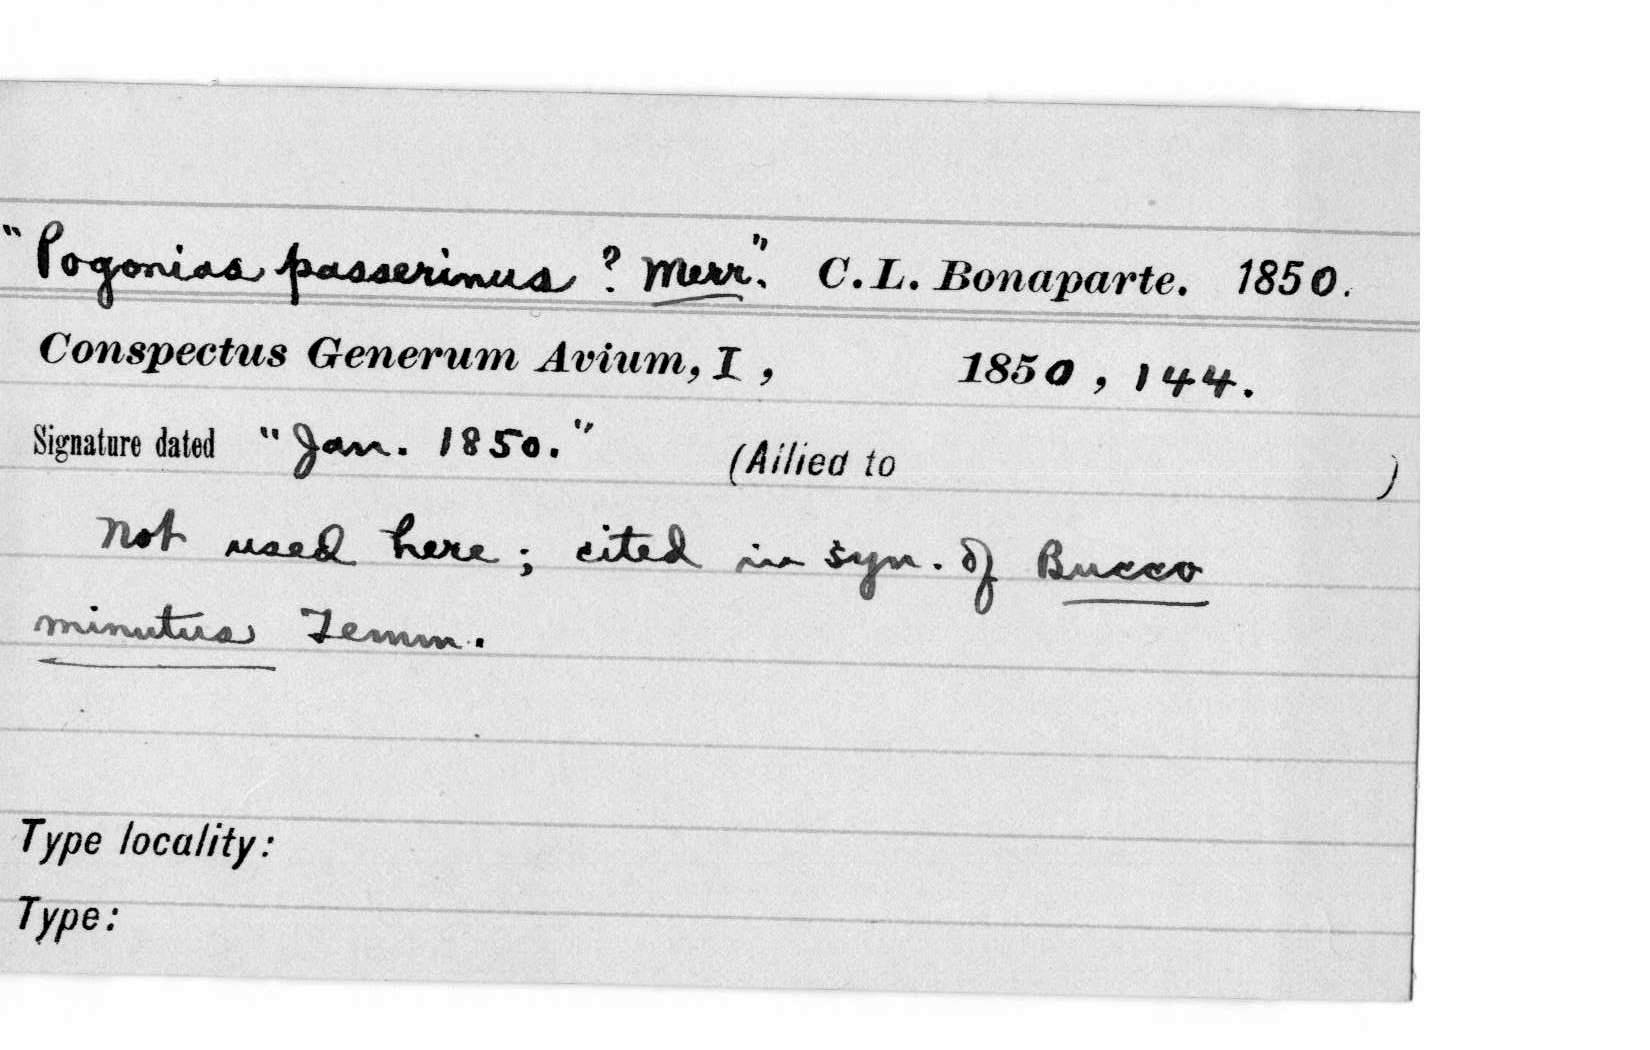 "Pogonias passerinus ? Merr". C. L. Bonaparte. 1850.
Conspectus Generum Avium, I, 1850, 144.
Signature dated "Jan. 1850." (Allied to )
Not used here; cited in syn. of Bucco
minutus Temm.
Type locality:
Type: